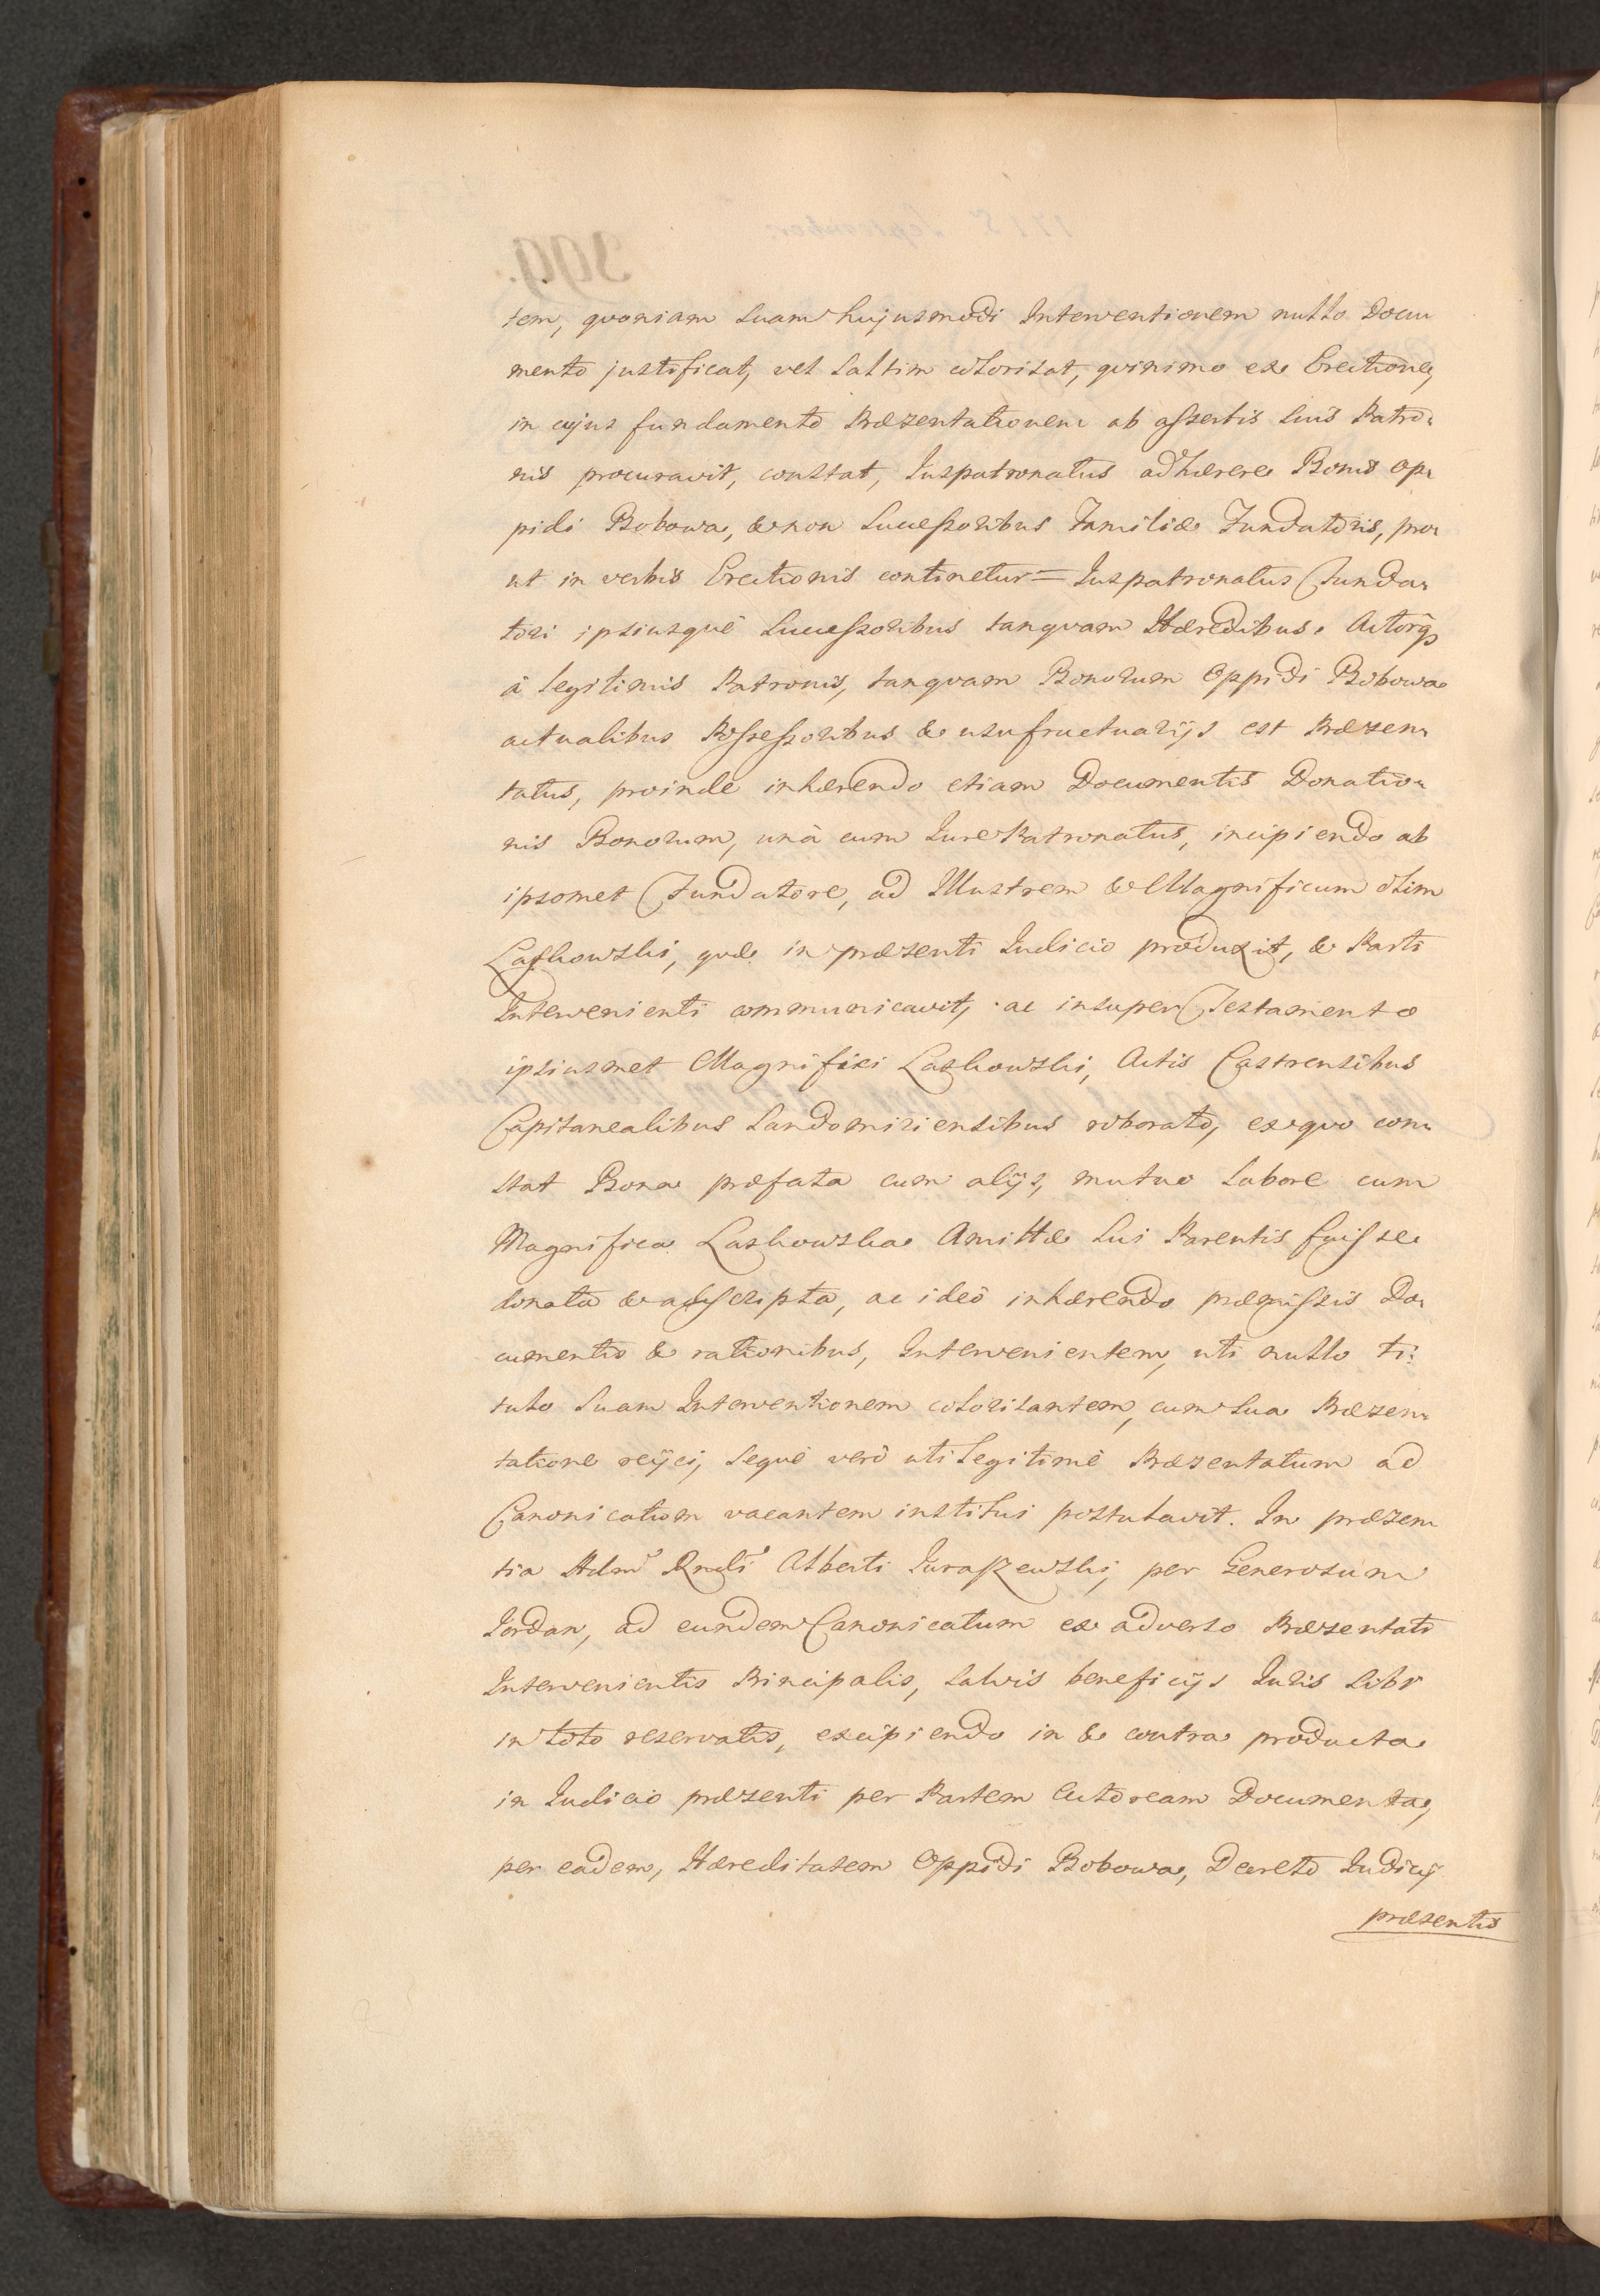 tem, quoniam suam hujusmodi Interventionem nullo Docu
mento justificat, vel saltim colorisat, quinimo ex Erectione,
in cujus fundamento Præsentationem ab assertis suis Patro-
nis procuravit, constat, Juspatronatus adhærere Bonis Op-
pidi Bobowa, & non Successoribus Familiæ Fundatoris, pro-
ut in verbis Erectionis continetur = Juspatronatus Funda-
tori ipsiusquè Successoribus tanquam Hæredibus. Actorq3
à legitimis Patronis, tanquam Bonorum Oppidi Bobowa
actualibus Possessoribus & usufructuarijs est Præsen-
tatus, proinde inhærendo etiam Documentis Donatio-
nis Bonorum, unà cum Jure Patronatus, incipiendo ab
ipsomet Fundatore, ad Illustrem & Magnificum olim
Laskowski, quæ in præsenti Judicio produxit, & Parti
Intervenienti communicavit, ac insuper Testamento
ipsiusmet Magnifici Laskowski, Actis Castrensibus
Capitanealibus Sandomiriensibus roborato, ex quo con-
stat Bona præfata cum alijs, mutuo labore cum
Magnifica Laskowska Amittæ sui Parentis fuisse
donata & asscripta, ac ideò inhærendo præmissis Do-
cumentis & rationibus, Intervenientem, uti nullo ti-
tulo suam Interventionem colorisantem, cum sua Præsen-
tatione rejici, sequè verò uti legitimè Præsentatum ad
Canonicatum vacantem institui postulavit. In præsen
tia Admd Rndi Alberti Juraszewski, per Generosum
Jordan, ad eundem Canonicatum ex adverso Præsentati
Intervenientis Principalis, salvis beneficijs Juris sibi
in toto reservatis, excipiendo in & contra producta
in Judicio præsenti per Partem Actoream Documenta,
per eadem, Hæreditatem Oppidi Bobowa, Decreto Judicij
præsentis